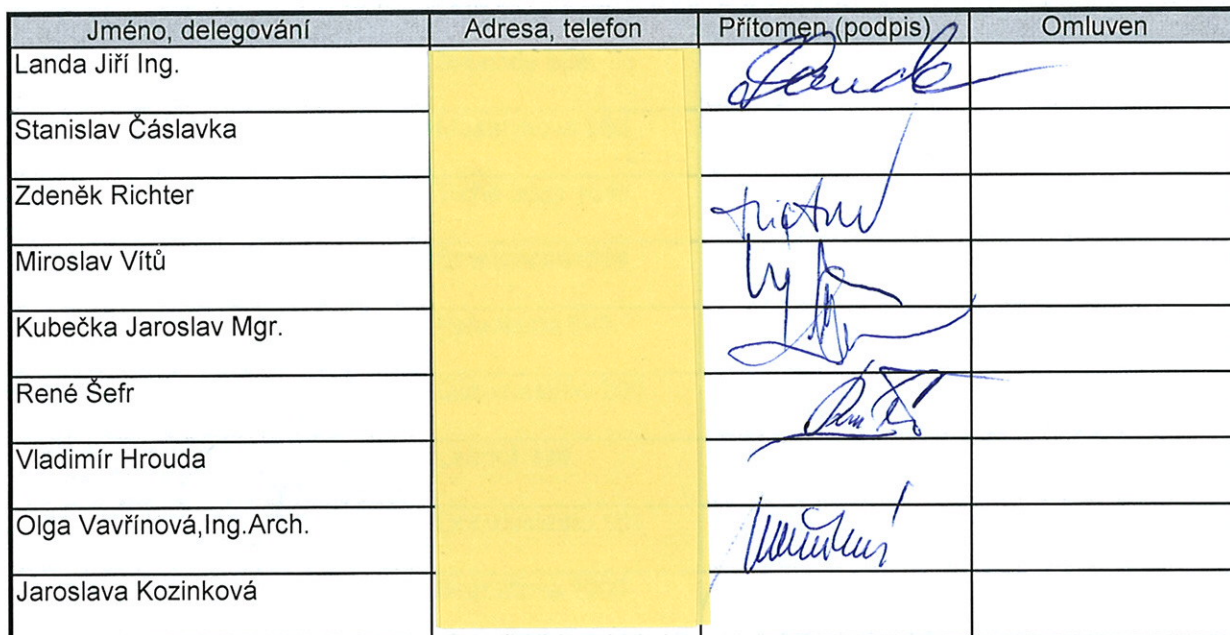 Jméno, delegování Adresa, telefon Přítomen (podpis) Omluven
Landa Jiří Ing. Landa
Stanislav Čáslavka
Zdeněk Richter
Miroslav Vítů
Kubečka Jaroslav Mgr.
René Šefr
Vladimír Hrouda
Olga Vavřínová,Ing.Arch.
Jaroslava Kozinková